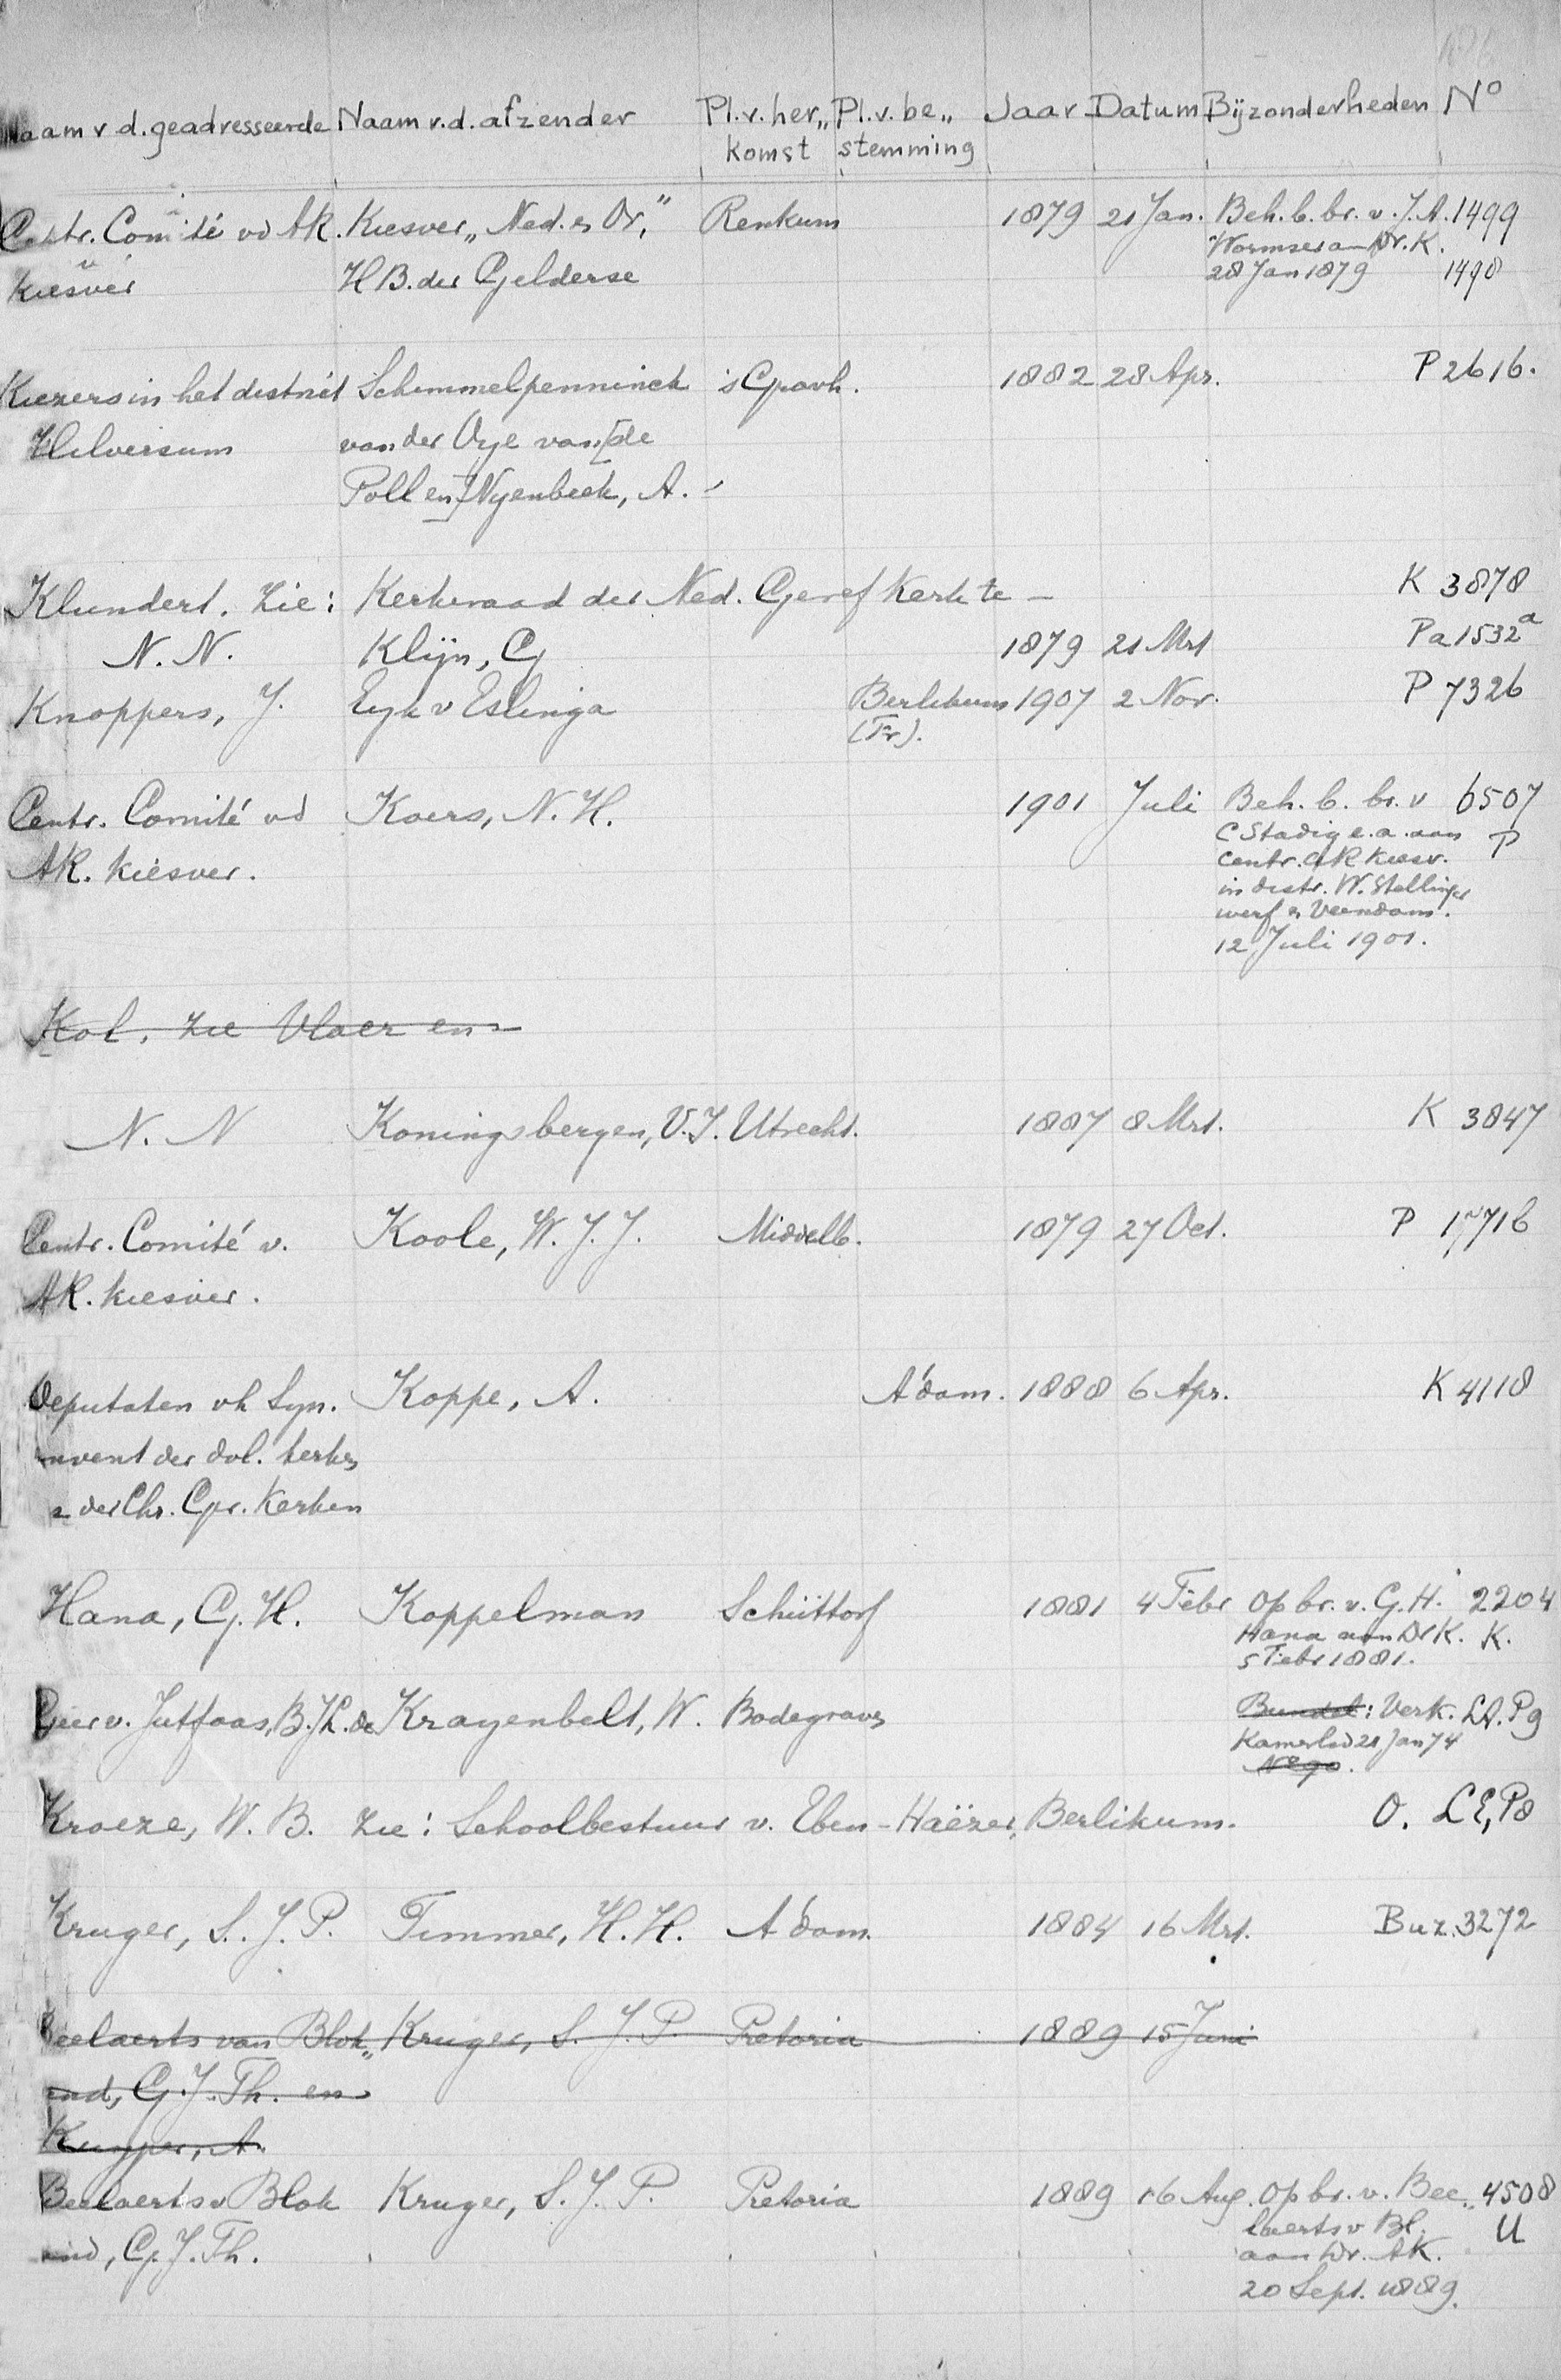 Naam v. d. geadresseerde Naam v. d. afzender Pl. v. her„ Pl. v. be„ Jaar Datum Bijzonderheden No
komst stemming
Centr. Comité vd AR. Kiesver„ Ned. en Or," Renkum 1879 21 Jan. Beh. b. br. v. J. A. 1499
Wormser aan Dr. K.
Kiesver H B. der Gelderse 28 Jan 1879 1498
Kiezers in het district Schimmelpenninck 's Gravh. 1882 28 Apr. P 2616.
Hilversum van der Oye van [de
Poll en] Nyenbeek, A.
Klundert. Zie: Kerkeraad der Ned. Geref Kerk te — K 3878
N. N. Klijn, G 1879 21 Mrt Pa 1532a
Knoppers, J. Eyk v Eslinga Berlikum 1907 2 Nov. P 7326
(Fr).
Centr. Comité vd Koers, N. H. 1901 Juli Beh. b. br. v 6507
C Stadig e. a. aan P
AR. kiesver. Centr. AR kiesv.
in distr. W. Stellinger
werf en Veendam.
12 Juli 1901.
Kol. zie Vlaer en —
N. N Koningsbergen, V. J. Utrecht. 1887 8 Mrt. K 3847
Centr. Comité v. Koole, W. J. J. Middelb. 1879 27 Oct. P 1771b
AR. kiesver.
Deputaten vh Syn. Koppe, A. A'dam. 1888 6 Apr. K 4118
nvent der dol. kerken
en der Chr. Ger. Kerken
Hana, G. H. Koppelman Schüttorf 1881 4 Febr Op br. v. G. H. 2204
Hana aan Dr K. K.
5 Febr 1881.
Geer v. Jutfaas, B. J. L. de Krayenbelt, W. Bodegraven Bundel: Verk. LA. P9
Kamerlid 21 Jan 74
No 90.
Kroeze, W. B. Zie: Schoolbestuur v. Eben-Haëzer, Berlikum. O. LE, P8
Kruger, S. J. P. Timmer, H. H. A'dam. 1884 16 Mrt. Buz. 3272
Beelaerts van Blok„ Kruger, S. J. P. Pretoria 1889 15 Juni
and, G. J. Th. en
Kuyper, A.
Beelaerts v Blok Kruger, S. J. P. Pretoria 1889 16 Aug. Op br. v. Bee„ 4508
laerts v Bl. U
and, G. J. Th. aan Dr. AK.
20 Sept. 1889.